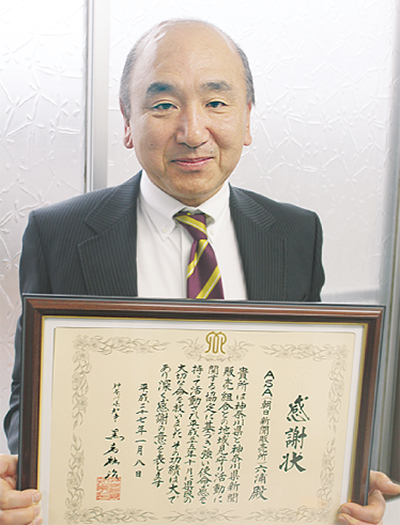 感謝状
ASA 朝日新聞販売所 六浦 殿
貴所は神奈川県と神奈川県新聞
販売組合との地域見守り活動に
関する協定に基づき強い使命感を
持って活動され平成二五年十月に県民の
大切な命を救いました その功績は大で
あり深く感謝の意を表します
平成二十七年一月八日
神奈川県知事 黒岩祐治